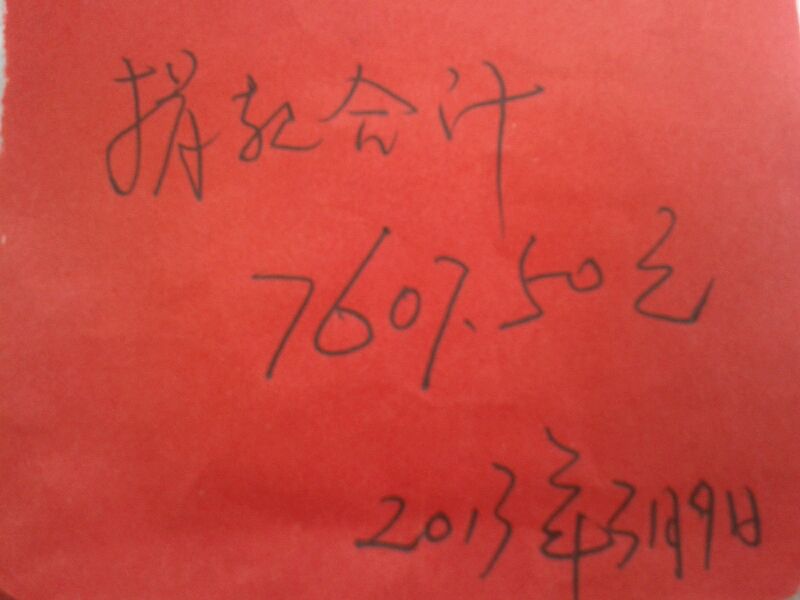 捐款合计
7607.50元
2013年3月9日